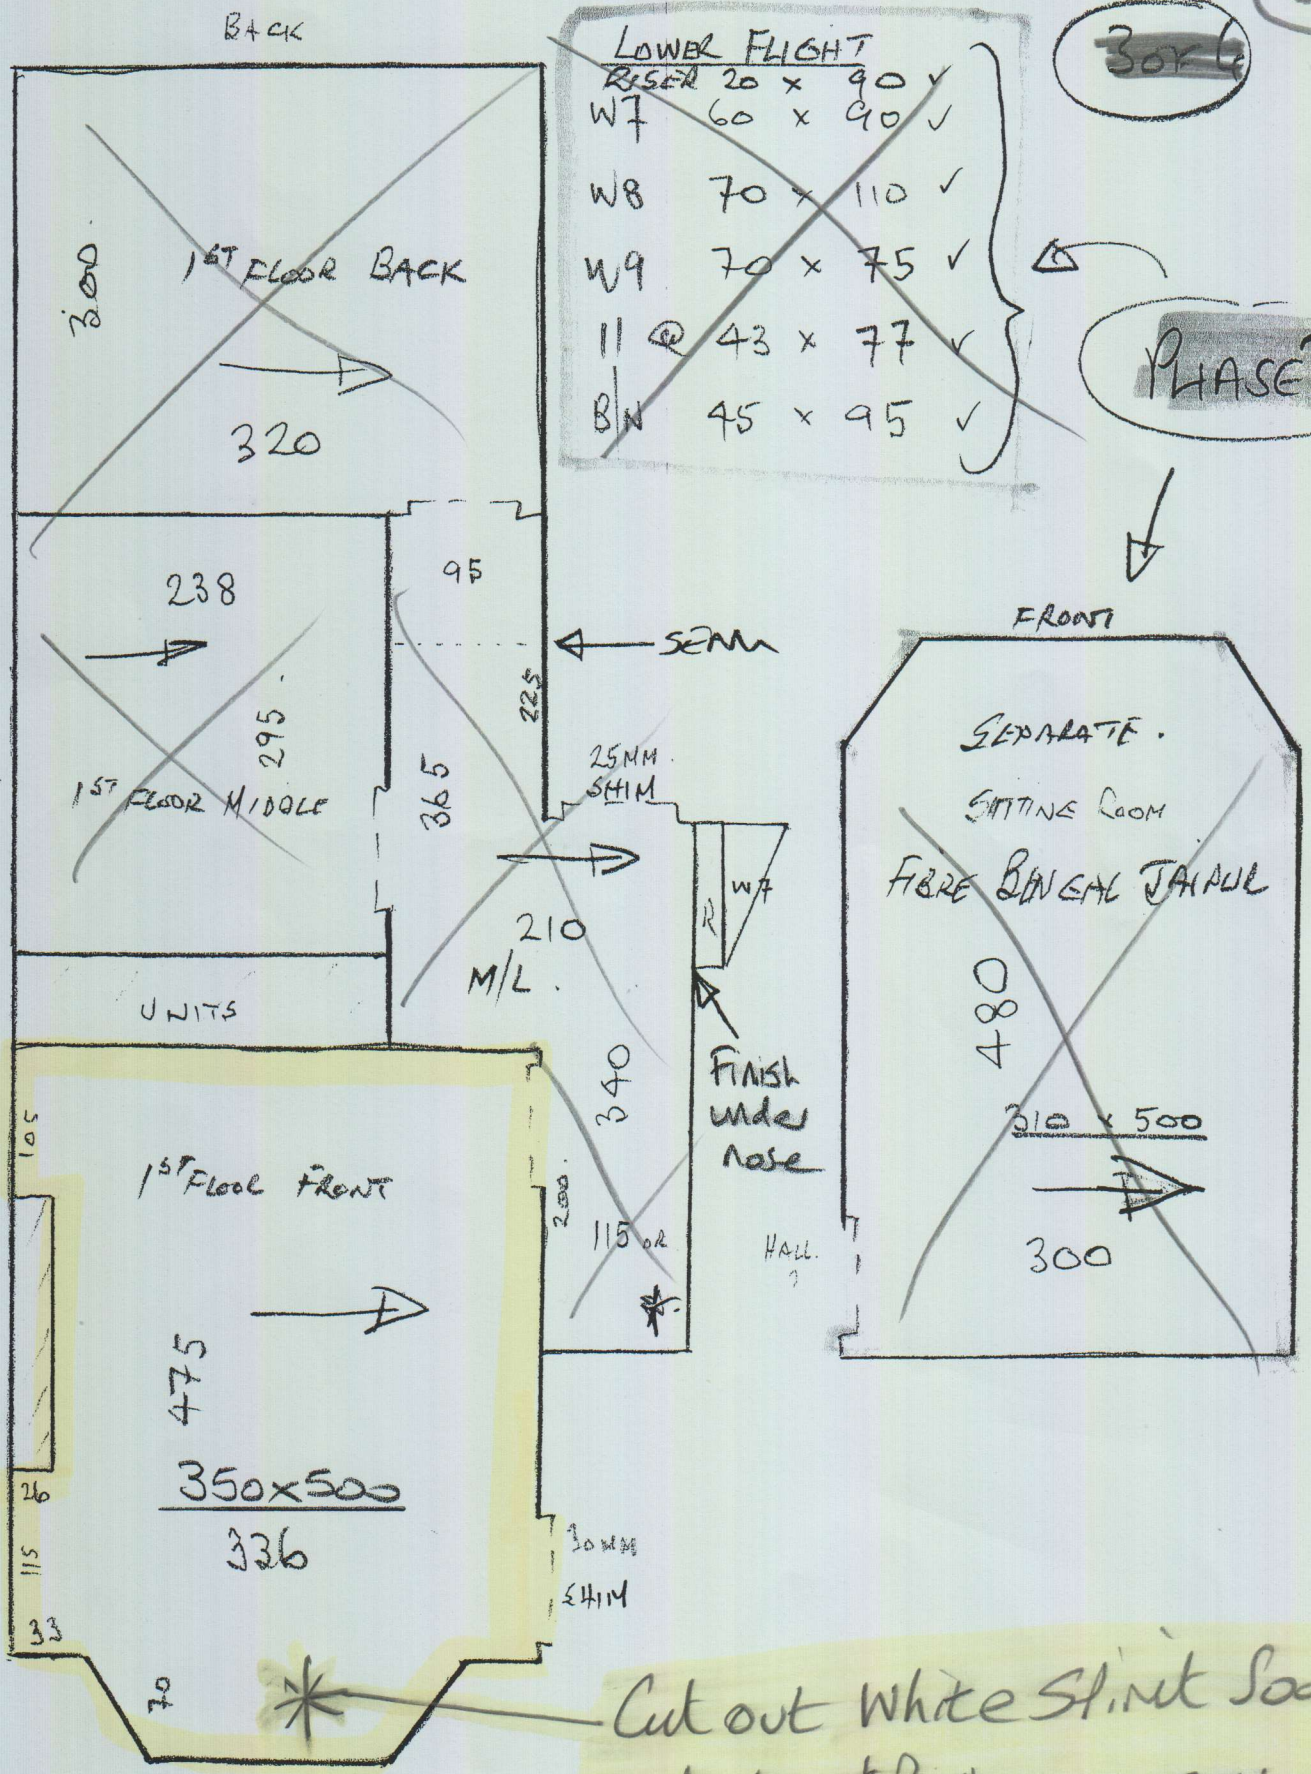 BACK
LOWER FLIGHT
RISER 20 x 90 ✓
W7 60 x 90 ✓
W8 70 x 110 ✓
W9 70 x 75 ✓
11 @ 43 x 77 ✓
B/N 45 x 95 ✓
3 or 4
PHASE
300
1ST FLOOR BACK
320
238
295
1ST FLOOR MIDDLE
95
SEAM
225
365
25MM
SHIM
R
W7
210
M/L
UNITS
340
Finish
under
nose
200
115 OR
*
HALL
?
FRONT
SEPARATE.
SITTING ROOM
FIBRE BENGAL JAIPUR
480
310 x 500
300
105
1ST FLOOR FRONT
475
350x500
336
26
115
33
70
30MM
SHIM
*
Cut out White Spirit